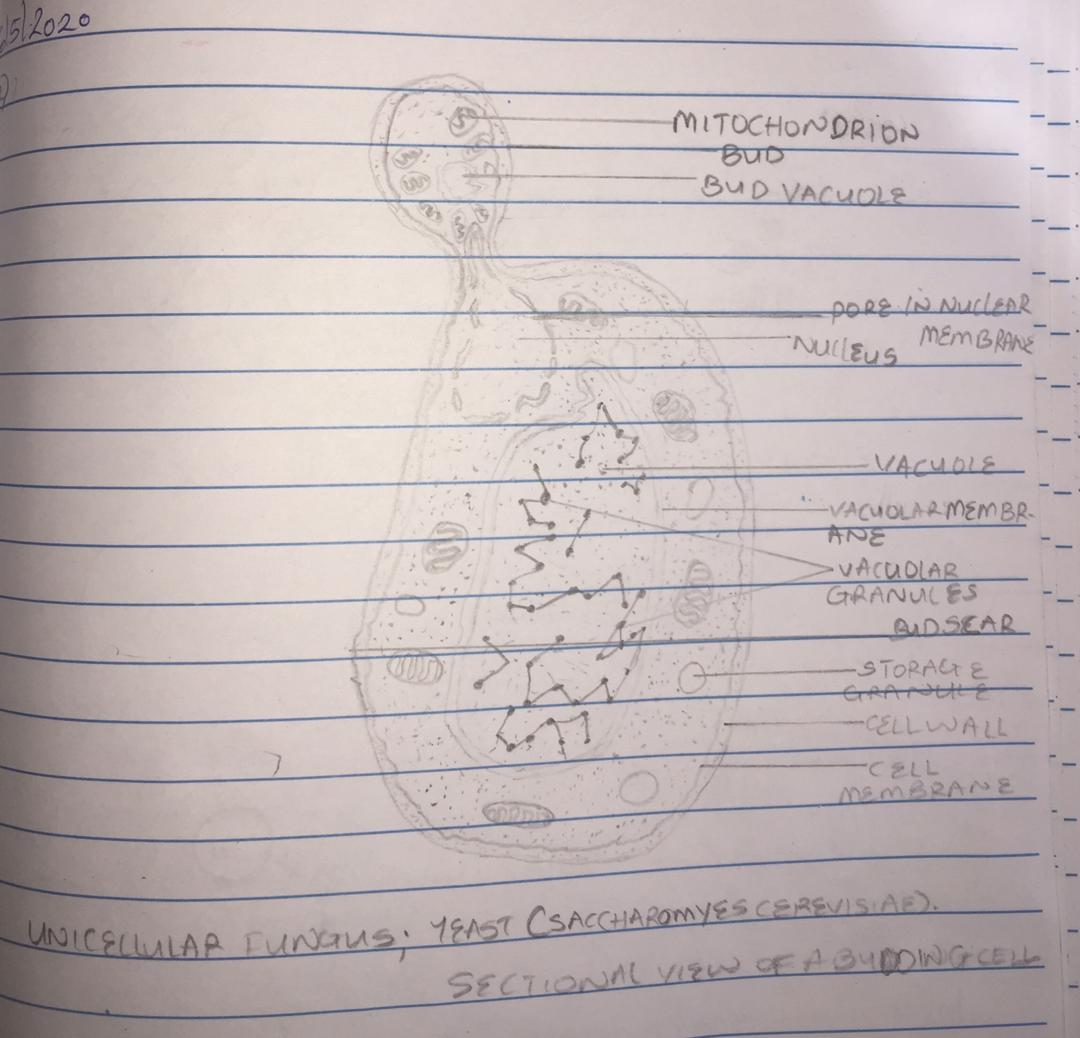 5/2020
MITOCHONDRION
BUD
BUD VACUOLE
PORE IN NUCLEAR
MEMBRANE
NUCLEUS
VACUOLE
VACUOLAR MEMBR-
ANE
VACUOLAR
GRANULES
BUDSCAR
STORAGE
GRANULE
CELL WALL
CELL
MEMBRANE
UNICELLULAR FUNGUS; YEAST (SACCHAROMYES CEREVISIAE).
SECTIONAL VIEW OF A BUDDING CELL